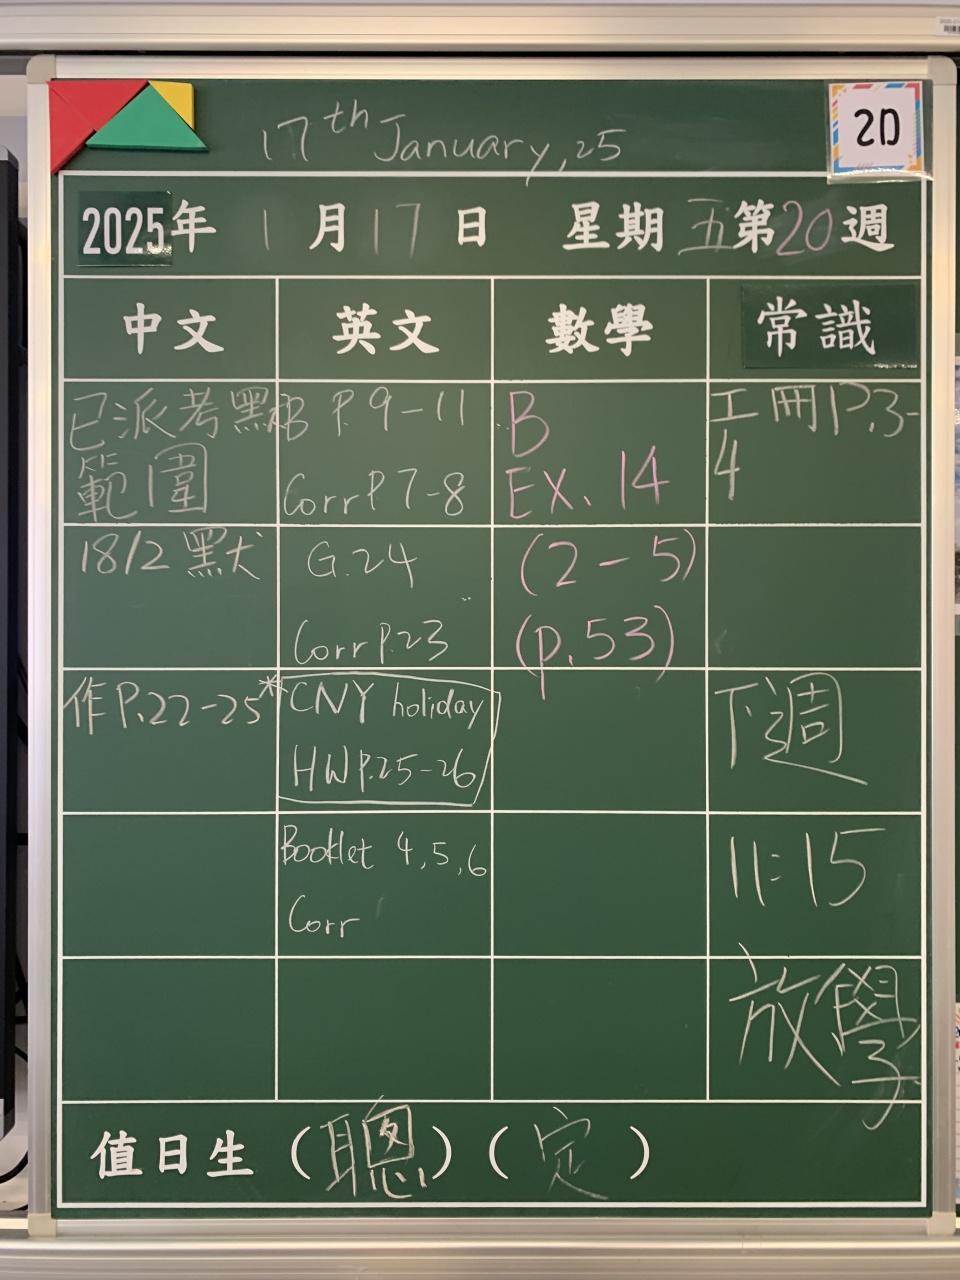 17th January, 25
2D
2025年 1月17日 星期五第20週
中文 英文 數學 常識
已派考默
範圍
18/2 默
作P.22-25
B P.9-11
Corr P.7-8
G.24
Corr P.23
*CNY holiday
HW P.25-26
Booklet 4,5,6
Corr
B
EX. 14
(2-5)
(p.53)
工冊P.3-
4
下週
11:15
放學
值日生(聰)(定)